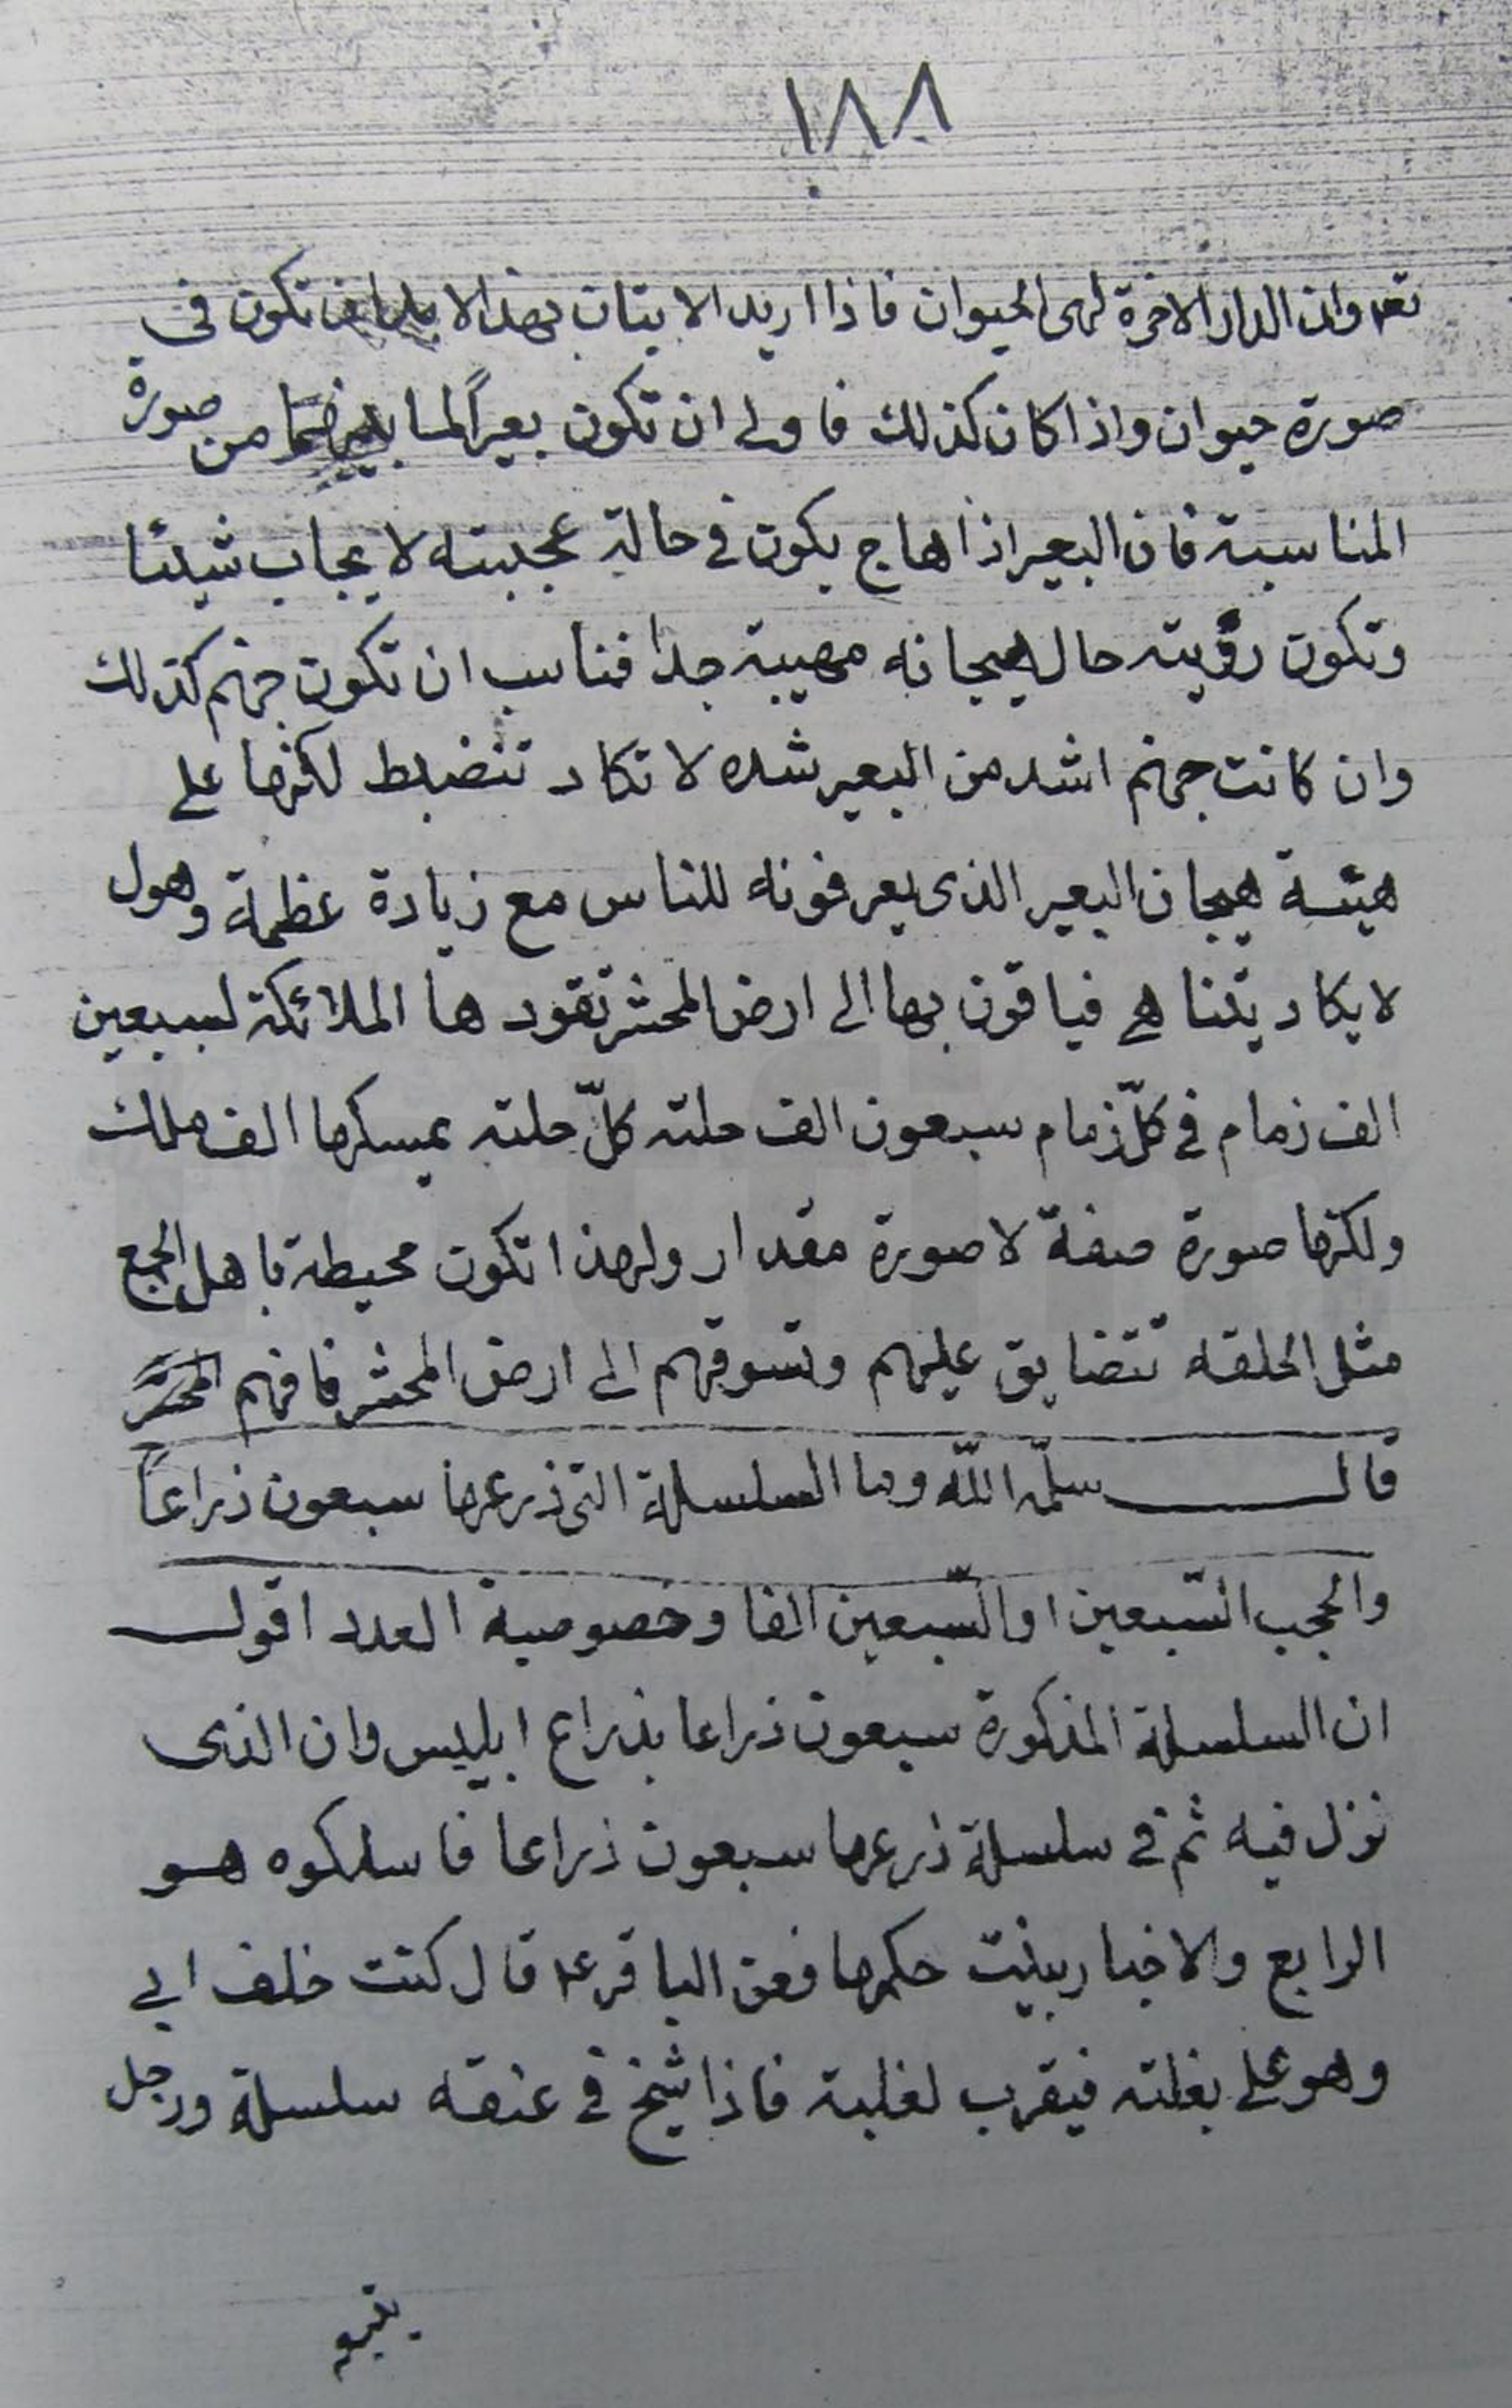 ١٨٨
تعه وان الدار الاخرة لهى الحيوان فاذا اريد الاتيان بهذا لا بد ان تكون فى
صورة حيوان واذا كان كذلك فاولى ان تكون بعيراً لما بينهما من صورة
المناسبة فان البعير اذا هاج يكون فى حالة عجيبته لا يجاب شيئا
وتكون رؤيته حال هيجانه مهيبة جدا فناسب ان تكون جهنم كذلك
وان كانت جهنم اشد من البعير شده لا تكاد تنضبط لكنها على
هيئة هيجان البعير الذى يعرفونه للناس مع زيادة عظمة وهول
لا يكاد يتناهى فياتون بها الى ارض المحشر تقودها الملائكة لسبعين
الف زمام فى كلّ زمام سبعون الف حلته كلّ حلته يمسكها الف ملك
ولكنها صورة صفة لا صورة مقدار ولهذا تكون محيطة باهل الجمع
مثل الحلقه تتضايق عليهم وتسوقهم الى ارض المحشر فافهم
قال سلّمه اللّه وما السلسلة التى ذرعها سبعون ذراعاً
والحجب السّبعين او السّبعين الفا وخصوصية العدد اقول
ان السلسلة المذكورة سبعون ذراعا بذراع ابليس وان الذى
نزل فيه ثم فى سلسلة ذرعها سبعون ذراعا فاسلكوه هو
الرابع والاخبار بينت حكمها فعن الباقر ع قال كنت خلف ابى
وهو على بغلته فيقرب لغلبة فاذا شيخ فى عنقه سلسلة ورجل
يتبعه